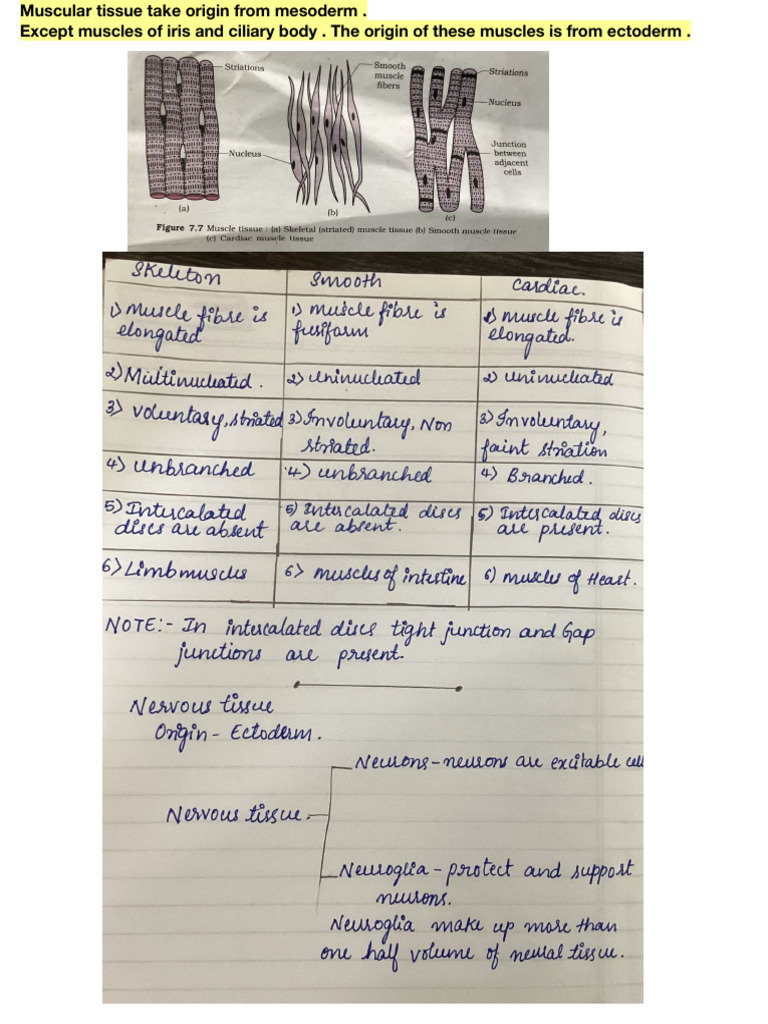 Muscular tissue take origin from mesoderm .
Except muscles of iris and ciliary body . The origin of these muscles is from ectoderm .
Striations
Nucleus
(a)
Smooth
muscle
fibers
(b)
Striations
Nucleus
Junction
between
adjacent
cells
(c)
Figure 7.7 Muscle tissue : (a) Skeletal (striated) muscle tissue (b) Smooth muscle tissue
(c) Cardiac muscle tissue
Skeleton
Smooth
Cardiac.
1) Muscle fibre is
elongated
1) muscle fibre is
fusiform
1) muscle fibre is
elongated.
2) Multinucleated .
2) Uninucleated
2) uninucleated
3) voluntary, striated
3) Involuntary, Non
striated.
3) Involuntary,
faint striation
4) unbranched
4) unbranched
4) Branched .
5) Intercalated
discs are absent
5) Intercalated discs
are absent .
5) Intercalated discs
are present.
6) Limb muscles
6) muscles of intestine
6) muscles of Heart.
NOTE:- In intercalated discs tight junction and Gap
junctions are present.
Nervous tissue
Origin - Ectoderm .
Neurons - neurons are excitable cell
Nervous tissue .
Neuroglia - protect and support
neurons.
Neuroglia make up more than
one half volume of neural tissue .